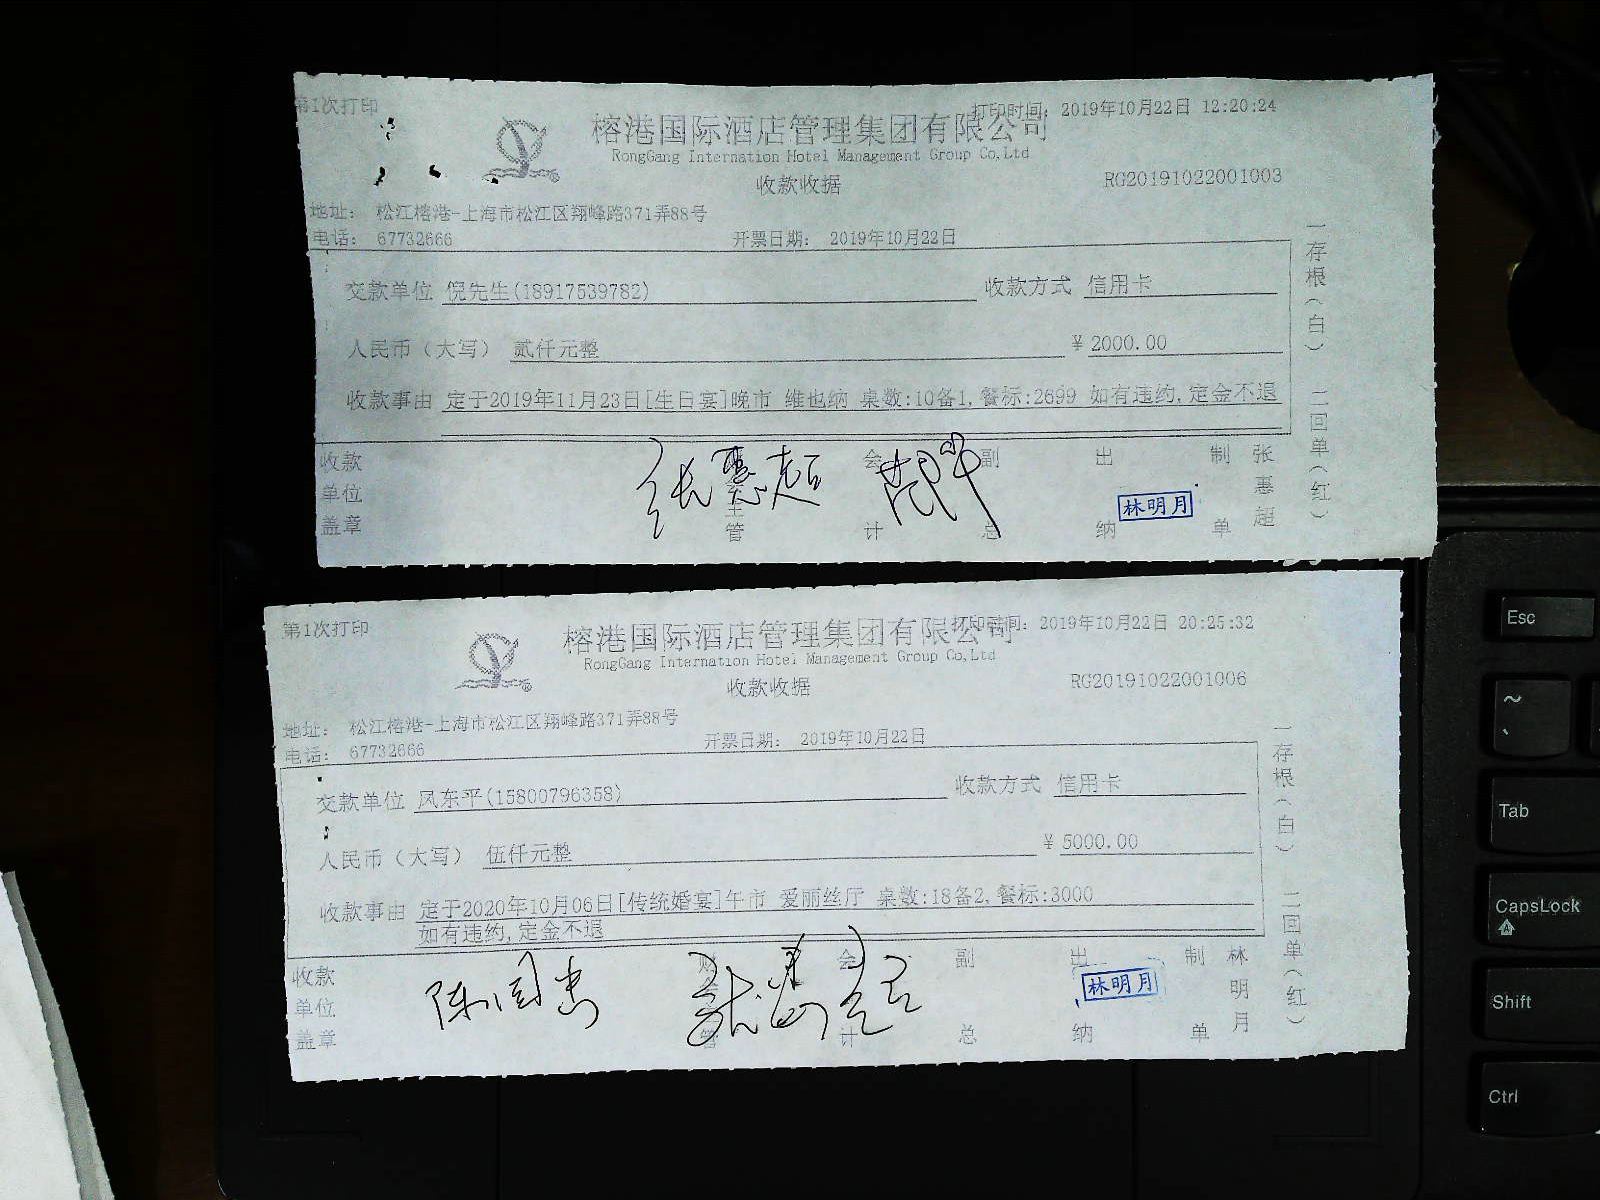 第1次打印
打印时间：2019年10月22日 12:20:24
榕港国际酒店管理集团有限公司
RongGang Internation Hotel Management Group Co,Ltd
收款收据
RG20191022001003
地址： 松江榕港-上海市松江区翔峰路371弄88号
电话： 67732666 开票日期： 2019年10月22日
交款单位 倪先生(18917539782) 收款方式 信用卡
人民币（大写） 贰仟元整 ¥ 2000.00
收款事由 定于2019年11月23日[生日宴]晚市 维也纳 桌数:10备1,餐标:2699 如有违约,定金不退
收款单位盖章 主管 会计 副总 出纳 制单 张惠超
张惠超
林明月
一存根（白） 二回单（红）
第1次打印
打印时间：2019年10月22日 20:25:32
榕港国际酒店管理集团有限公司
RongGang Internation Hotel Management Group Co,Ltd
收款收据
RG20191022001006
地址： 松江榕港-上海市松江区翔峰路371弄88号
电话： 67732666 开票日期： 2019年10月22日
交款单位 凤东平(15800796358) 收款方式 信用卡
人民币（大写） 伍仟元整 ¥ 5000.00
收款事由 定于2020年10月06日[传统婚宴]午市 爱丽丝厅 桌数:18备2,餐标:3000
如有违约,定金不退
收款单位盖章 财 管 会计 副总 出纳 制单 林明月
林明月
一存根（白） 二回单（红）
Esc
~
Tab
CapsLock
A
Shift
Ctrl